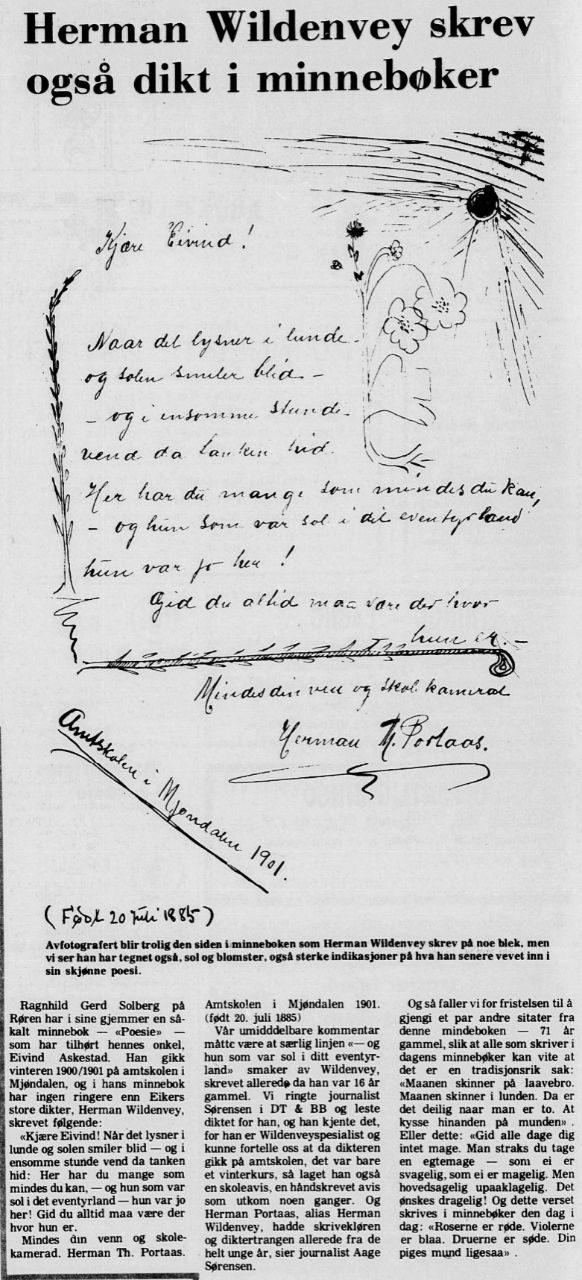 Herman Wildenvey skrev
også dikt i minnebøker
Kjære Eivind!
Naar det lysner i lunde –
og solen smiler blid –
– og i ensomme stunde –
vend da tanken hid.
Her har du mange som mindes du kan,
– og hun som var sol i dit eventyrland
hun var jo her!
Gid du altid maa være der hvor
hun er. –
Mindes din ven og skolekamerad
Herman Th. Portaas.
Amtskolen i Mjøndalen 1901.
(Født 20 juli 1885)
Avfotografert blir trolig den siden i minneboken som Herman Wildenvey skrev på noe blek, men
vi ser han har tegnet også, sol og blomster, også sterke indikasjoner på hva han senere vevet inn i
sin skjønne poesi.
Ragnhild Gerd Solberg på
Røren har i sine gjemmer en så-
kalt minnebok — «Poesie» —
som har tilhørt hennes onkel,
Eivind Askestad. Han gikk
vinteren 1900/1901 på amtskolen i
Mjøndalen, og i hans minnebok
har ingen ringere enn Eikers
store dikter, Herman Wildenvey,
skrevet følgende:
«Kjære Eivind! Når det lysner i
lunde og solen smiler blid — og i
ensomme stunde vend da tanken
hid: Her har du mange som
mindes du kan, — og hun som var
sol i det eventyrland — hun var jo
her! Gid du alltid maa være der
hvor hun er.
Mindes din venn og skole-
kamerad. Herman Th. Portaas.
Amtskolen i Mjøndalen 1901.
(født 20. juli 1885)
Vår umidddelbare kommentar
måtte være at særlig linjen «— og
hun som var sol i ditt eventyr-
land» smaker av Wildenvey,
skrevet allerede da han var 16 år
gammel. Vi ringte journalist
Sørensen i DT & BB og leste
diktet for han, og han kjente det,
for han er Wildenveyspesialist og
kunne fortelle oss at da dikteren
gikk på amtskolen, det var bare
et vinterkurs, så laget han også
en skoleavis, en håndskrevet avis
som utkom noen ganger. Og
Herman Portaas, alias Herman
Wildenvey, hadde skrivekløen
og diktertrangen allerede fra de
helt unge år, sier journalist Aage
Sørensen.
Og så faller vi for fristelsen til å
gjengi et par andre sitater fra
denne mindeboken — 71 år
gammel, slik at alle som skriver i
dagens minnebøker kan vite at
det er en tradisjonsrik sak:
«Maanen skinner på laavebro.
Maanen skinner i lunden. Da er
det deilig naar man er to. At
kysse hinanden på munden» .
Eller dette: «Gid alle dage dig
intet mage. Man straks du tage
en egtemage — som ei er
svagelig, som ei er magelig. Men
hovedsagelig upaaklagelig. Det
ønskes dragelig! Og dette verset
skrives i minnebøker den dag i
dag: «Roserne er røde. Violerne
er blaa. Druerne er søde. Din
piges mund ligesaa» .